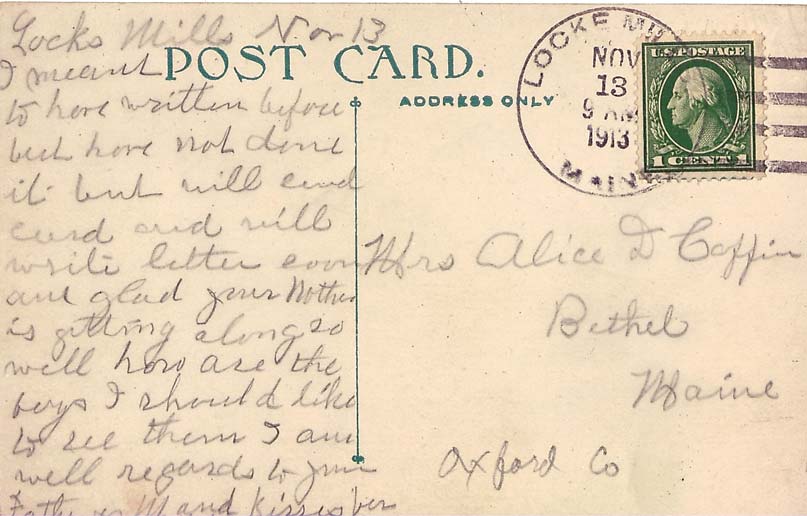 Locks Mills Nov 13
I meant
to have written before
but have not done
it but will send
card and will
write letter soon
am glad your Mother
is getting along so
well how are the
boys I should like
to see them I am
well regards to your
Father &amp; M and kisses for
POST CARD.
ADDRESS ONLY
LOCKE MILLS
NOV
13
9 AM
1913
MAINE
U.S. POSTAGE
1 CENT 1
Mrs Alice D Coffin
Bethel
Maine
Oxford Co